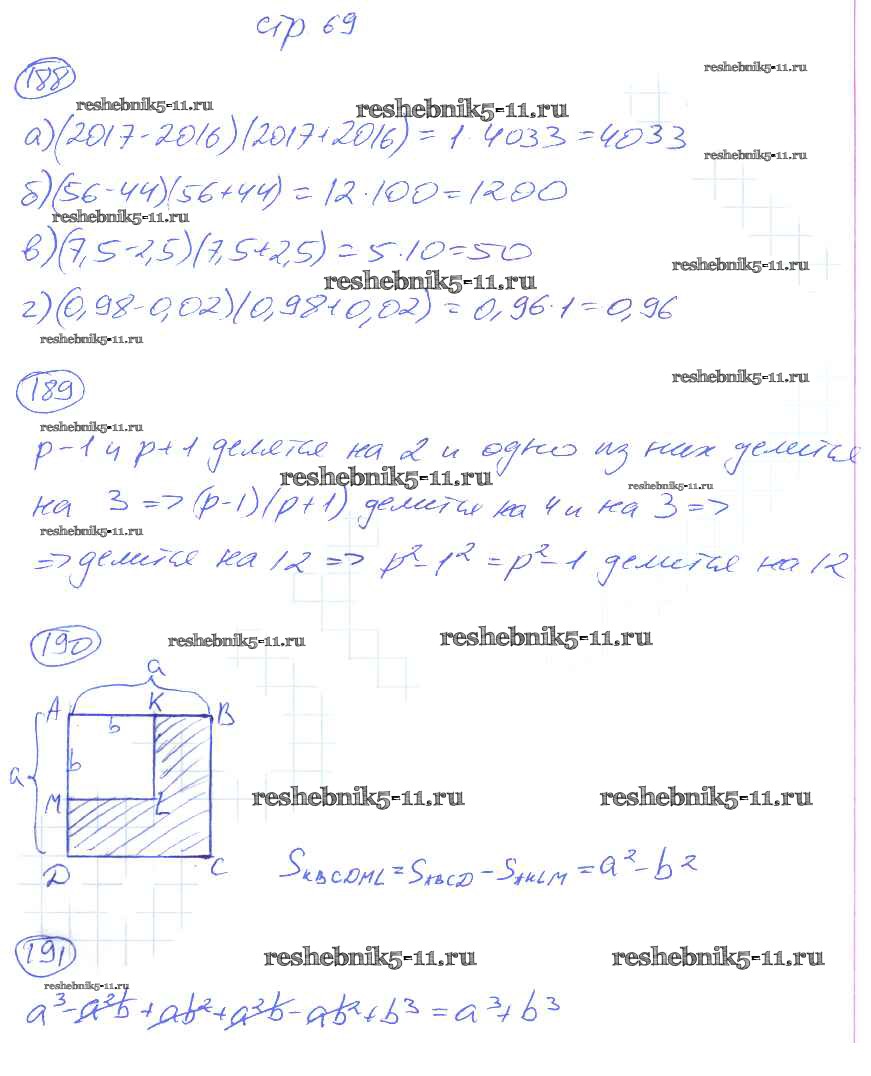 стр 69
188
reshebnik5-11.ru
reshebnik5-11.ru
reshebnik5-11.ru
а)(2017-2016)(2017+2016) = 1·4033 = 4033
reshebnik5-11.ru
б)(56-44)(56+44) = 12·100 = 1200
reshebnik5-11.ru
в)(7,5-2,5)(7,5+2,5) = 5·10 = 50
reshebnik5-11.ru
reshebnik5-11.ru
г)(0,98-0,02)(0,98+0,02) = 0,96·1 = 0,96
reshebnik5-11.ru
189
reshebnik5-11.ru
reshebnik5-11.ru
p-1 и p+1 делятся на 2 и одно из них делится
reshebnik5-11.ru
reshebnik5-11.ru
на 3 => (p-1)(p+1) делится на 4 и на 3 =>
reshebnik5-11.ru
=> делится на 12 => p²-1² = p²-1 делится на 12
190
reshebnik5-11.ru
reshebnik5-11.ru
a
A K B
b
b
a
M L
reshebnik5-11.ru
reshebnik5-11.ru
D C
S_KBCDML = S_ABCD - S_AKLM = a² - b²
191
reshebnik5-11.ru
reshebnik5-11.ru
reshebnik5-11.ru
a³-a²b+ab²+a²b-ab²+b³ = a³+b³